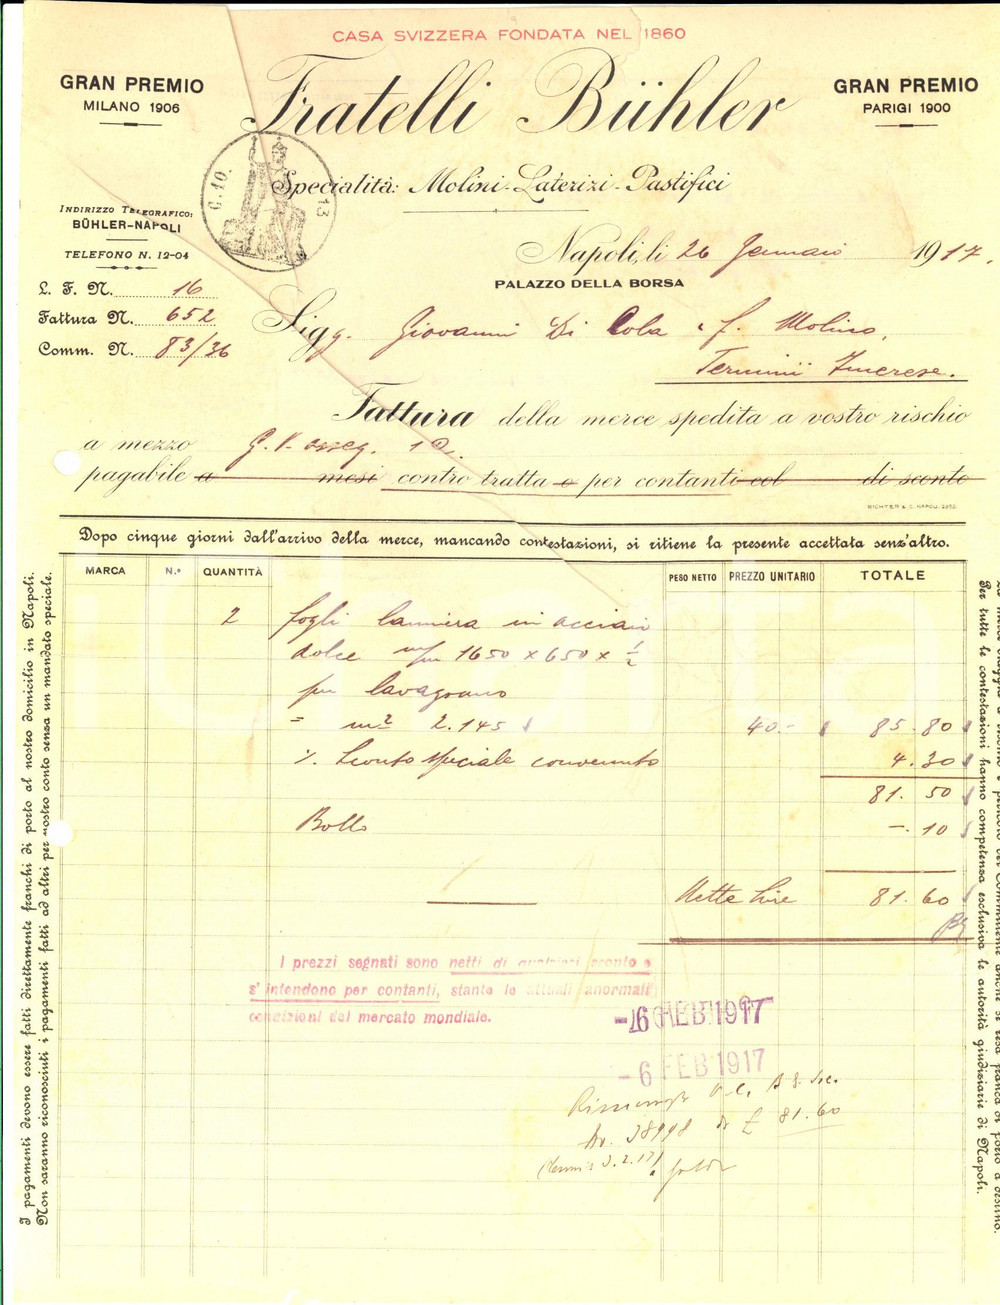 CASA SVIZZERA FONDATA NEL 1860
GRAN PREMIO
MILANO 1906
Fratelli Bühler
GRAN PREMIO
PARIGI 1900
Specialità: Molini-Laterizi-Pastifici
G. 10.
13
INDIRIZZO TELEGRAFICO:
BÜHLER-NAPOLI
TELEFONO N. 12-04
Napoli, li 26 Gennaio 1917.
PALAZZO DELLA BORSA
L. F. N. 16
Fattura N. 652
Comm. N. 83/36
Sigg. Giovanni Di Cola & f. Molino,
Termini Imerese.
Fattura della merce spedita a vostro rischio
a mezzo G.V. asseg.
pagabile a mesi contro tratta o per contanti col di sconto
RICHTER & C. NAPOLI
Dopo cinque giorni dall'arrivo della merce, mancando contestazioni, si ritiene la presente accettata senz'altro.
MARCA N.° QUANTITÀ PESO NETTO PREZZO UNITARIO TOTALE
2 fogli lamiera in acciaio
dolce m/m 1650 x 650 x 1/2
per lavagrano
= m2 2.145 40.- 85.80
%. Sconto speciale convenuto 4.30
81.50
Bollo -.10
Nette Lire 81.60
I prezzi segnati sono netti di qualsiasi sconto e
s'intendono per contanti, stante le attuali anormali
condizioni del mercato mondiale.
-6 FEB 1917
-6 FEB 1917
81.60
I pagamenti devono essere fatti direttamente franchi di porto al nostro domicilio in Napoli.
Non saranno riconosciuti i pagamenti fatti ad altri per nostro conto senza un mandato speciale.
Per tutte le contestazioni hanno competenza esclusiva le autorità giudiziarie di Napoli.